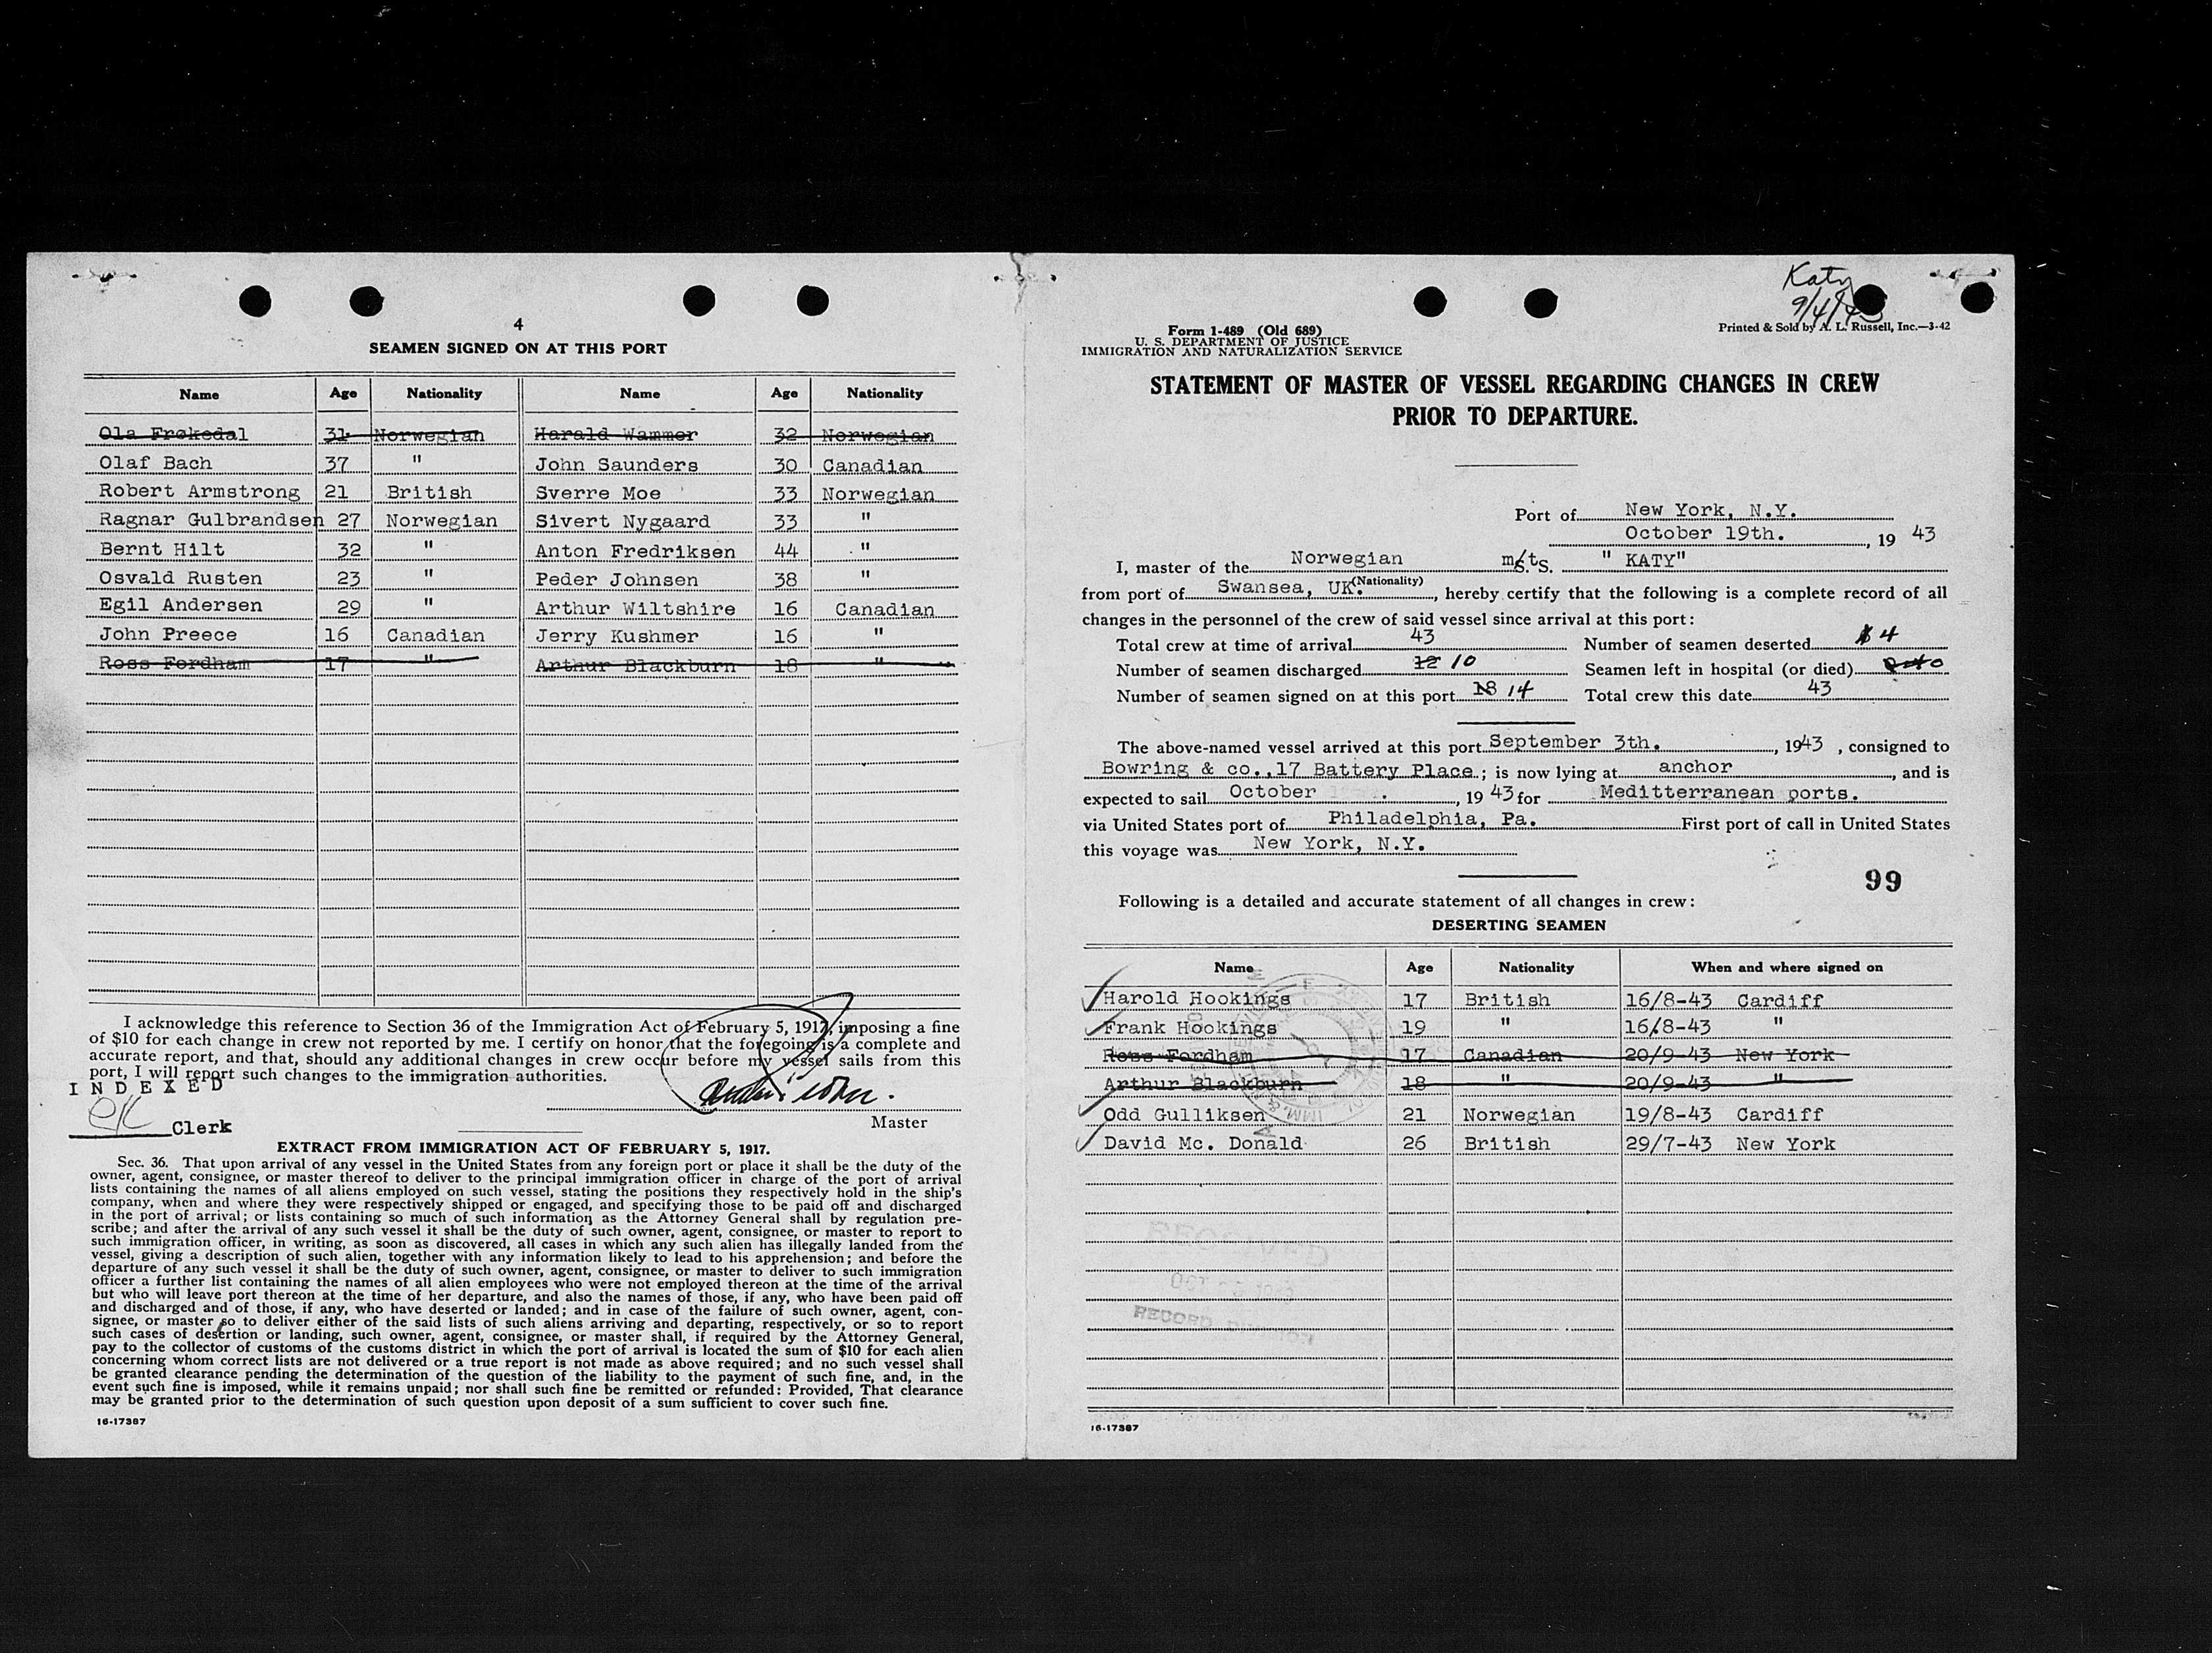 4
SEAMEN SIGNED ON AT THIS PORT
Name Age Nationality Name Age Nationality
Ola Frøkedal 31 Norwegian Harald Wammer 32 Norwegian
Olaf Bach 37 " John Saunders 30 Canadian
Robert Armstrong 21 British Sverre Moe 33 Norwegian
Ragnar Gulbrandsen 27 Norwegian Sivert Nygaard 33 "
Bernt Hilt 32 " Anton Fredriksen 44 "
Osvald Rusten 23 " Peder Johnsen 38 "
Egil Andersen 29 " Arthur Wiltshire 16 Canadian
John Preece 16 Canadian Jerry Kushmer 16 "
Ross Fordham 17 " Arthur Blackburn 18 "
I acknowledge this reference to Section 36 of the Immigration Act of February 5, 1917, imposing a fine
of $10 for each change in crew not reported by me. I certify on honor that the foregoing is a complete and
accurate report, and that, should any additional changes in crew occur before my vessel sails from this
port, I will report such changes to the immigration authorities.
INDEXED
Clerk
Master
EXTRACT FROM IMMIGRATION ACT OF FEBRUARY 5, 1917.
Sec. 36. That upon arrival of any vessel in the United States from any foreign port or place it shall be the duty of the
owner, agent, consignee, or master thereof to deliver to the principal immigration officer in charge of the port of arrival
lists containing the names of all aliens employed on such vessel, stating the positions they respectively hold in the ship's
company, when and where they were respectively shipped or engaged, and specifying those to be paid off and discharged
in the port of arrival; or lists containing so much of such information as the Attorney General shall by regulation pre-
scribe; and after the arrival of any such vessel it shall be the duty of such owner, agent, consignee, or master to report to
such immigration officer, in writing, as soon as discovered, all cases in which any such alien has illegally landed from the
vessel, giving a description of such alien, together with any information likely to lead to his apprehension; and before the
departure of any such vessel it shall be the duty of such owner, agent, consignee, or master to deliver to such immigration
officer a further list containing the names of all alien employees who were not employed thereon at the time of the arrival
but who will leave port thereon at the time of her departure, and also the names of those, if any, who have been paid off
and discharged and of those, if any, who have deserted or landed; and in case of the failure of such owner, agent, con-
signee, or master so to deliver either of the said lists of such aliens arriving and departing, respectively, or so to report
such cases of desertion or landing, such owner, agent, consignee, or master shall, if required by the Attorney General,
pay to the collector of customs of the customs district in which the port of arrival is located the sum of $10 for each alien
concerning whom correct lists are not delivered or a true report is not made as above required; and no such vessel shall
be granted clearance pending the determination of the question of the liability to the payment of such fine, and, in the
event such fine is imposed, while it remains unpaid; nor shall such fine be remitted or refunded: Provided, That clearance
may be granted prior to the determination of such question upon deposit of a sum sufficient to cover such fine.
16-17387
Katy
9/4/43
Form 1-489 (Old 689)
U. S. DEPARTMENT OF JUSTICE
IMMIGRATION AND NATURALIZATION SERVICE
Printed & Sold by A. L. Russell, Inc.—3-42
STATEMENT OF MASTER OF VESSEL REGARDING CHANGES IN CREW
PRIOR TO DEPARTURE.
Port of New York, N.Y.
October 19th. , 19 43
I, master of the Norwegian m/ts. " KATY"
(Nationality)
from port of Swansea, UK. , hereby certify that the following is a complete record of all
changes in the personnel of the crew of said vessel since arrival at this port:
Total crew at time of arrival 43 Number of seamen deserted 4
Number of seamen discharged 12 10 Seamen left in hospital (or died) 0
Number of seamen signed on at this port 18 14 Total crew this date 43
The above-named vessel arrived at this port September 3th. , 1943 , consigned to
Bowring & co.,17 Battery Place ; is now lying at anchor , and is
expected to sail October . , 19 43 for Meditterranean ports.
via United States port of Philadelphia, Pa. First port of call in United States
this voyage was New York, N.Y.
99
Following is a detailed and accurate statement of all changes in crew:
DESERTING SEAMEN
Name Age Nationality When and where signed on
Harold Hookings 17 British 16/8-43 Cardiff
Frank Hookings 19 " 16/8-43 "
Ross Fordham 17 Canadian 20/9-43 New York
Arthur Blackburn 18 " 20/9-43 "
Odd Gulliksen 21 Norwegian 19/8-43 Cardiff
David Mc. Donald 26 British 29/7-43 New York
RECEIVED
RECORD DIVISION
16-17387